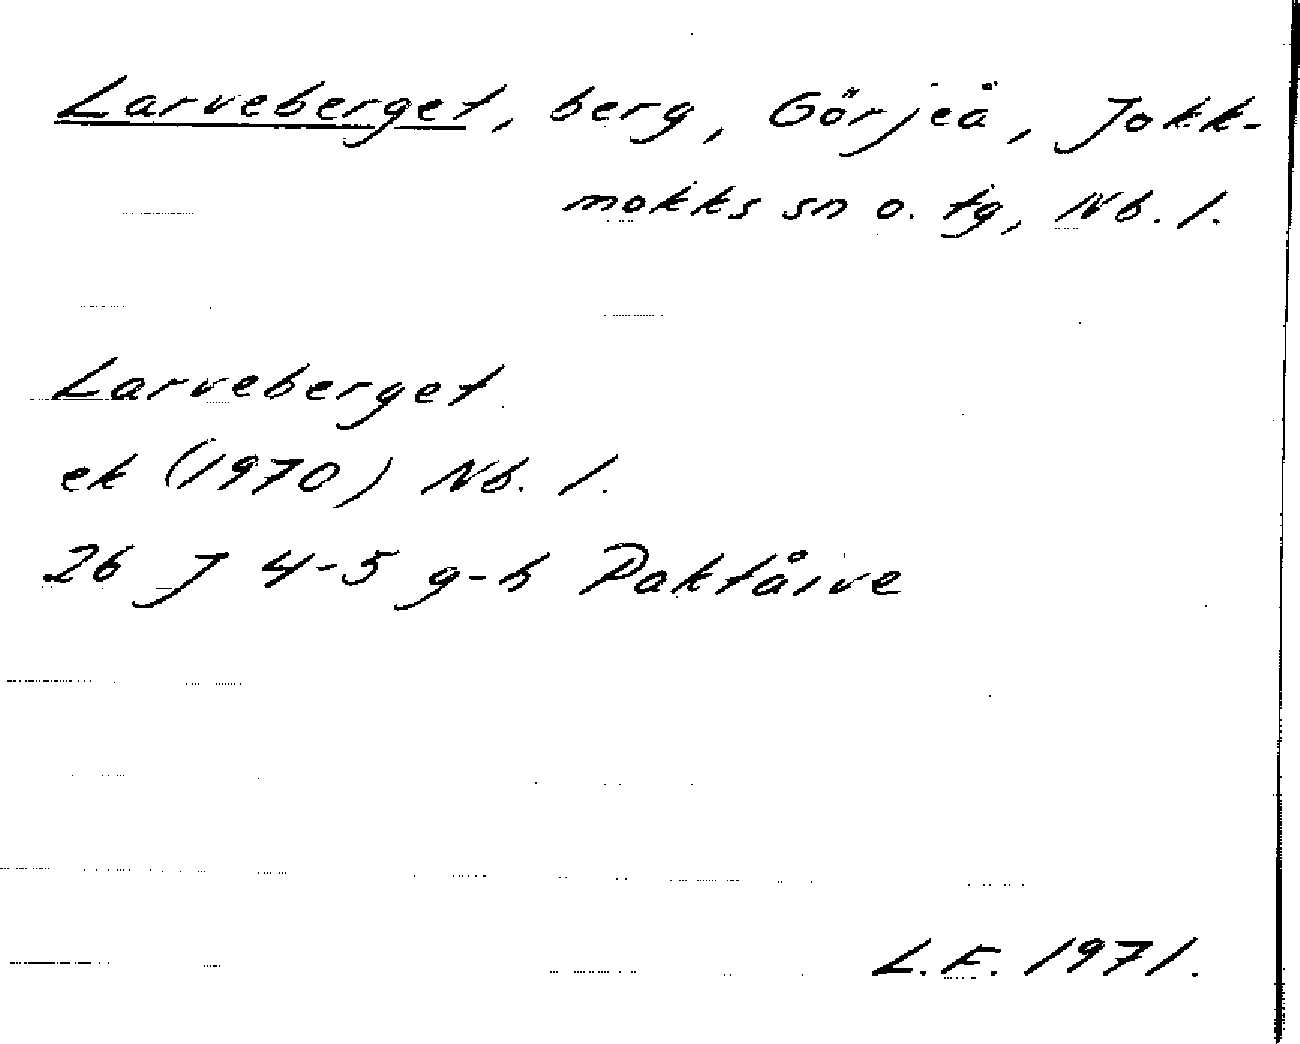 Larveberget, berg, Görjeå, Jokk-
mokks sn o. tg, Nb. l.
Larveberget
ek (1970) Nb. l.
26 J 4-5 g-h Paktåive
L.E. 1971.